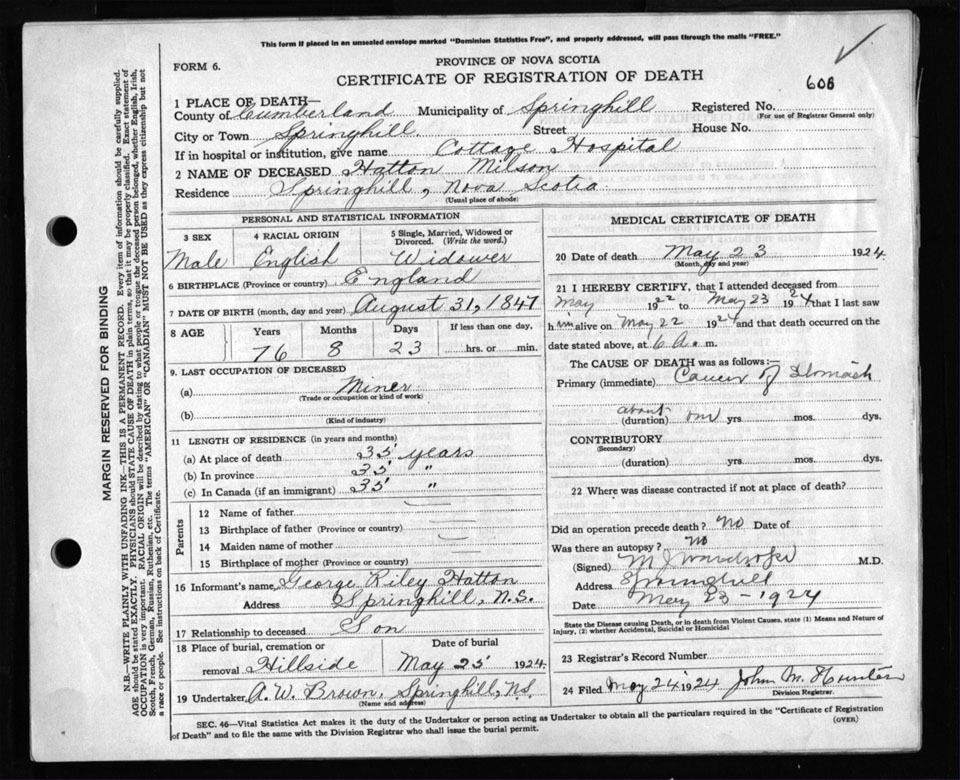 This form if placed in an unsealed envelope marked "Dominion Statistics Free", and properly addressed, will pass through the mails "FREE."
FORM 6.
PROVINCE OF NOVA SCOTIA
CERTIFICATE OF REGISTRATION OF DEATH
606
1 PLACE OF DEATH—
County of Cumberland Municipality of Springhill Registered No.
(For use of Registrar General only)
City or Town Springhill Street House No.
If in hospital or institution, give name Cottage Hospital
2 NAME OF DECEASED Hatton Milson
Residence Springhill, Nova Scotia
(Usual place of abode)
PERSONAL AND STATISTICAL INFORMATION
3 SEX 4 RACIAL ORIGIN 5 Single, Married, Widowed or Divorced. (Write the word.)
Male English Widower
6 BIRTHPLACE (Province or country) England
7 DATE OF BIRTH (month, day and year) August 31, 1847
8 AGE Years Months Days If less than one day,
76 8 23 hrs. or min.
9. LAST OCCUPATION OF DECEASED
(a) Miner
(Trade or occupation or kind of work)
(b)
(Kind of industry)
11 LENGTH OF RESIDENCE (in years and months)
(a) At place of death 35 years
(b) In province 35 "
(c) In Canada (if an immigrant) 35 "
Parents
12 Name of father
13 Birthplace of father (Province or country)
14 Maiden name of mother
15 Birthplace of mother (Province or country)
16 Informant's name George Riley Hatton
Address Springhill, N.S.
17 Relationship to deceased Son
18 Place of burial, cremation or Date of burial
removal Hillside May 25 1924
19 Undertaker A. W. Brown. Springhill, NS.
(Name and address)
MEDICAL CERTIFICATE OF DEATH
20 Date of death May 23 1924
(Month, day and year)
21 I HEREBY CERTIFY, that I attended deceased from
May 1922 to May 23 1924 that I last saw
him alive on May 22 1924 and that death occurred on the
date stated above, at 6 a. m.
The CAUSE OF DEATH was as follows:—
Primary (immediate) Cancer of Stomach
about
(duration) one yrs mos. dys.
CONTRIBUTORY
(Secondary)
(duration) yrs. mos. dys.
22 Where was disease contracted if not at place of death?
Did an operation precede death? No Date of
Was there an autopsy? No
(Signed) M.D.
Address Springhill
Date May 23 - 1924
State the Disease causing Death, or in death from Violent Causes, state (1) Means and Nature of
Injury, (2) whether Accidental, Suicidal or Homicidal
23 Registrar's Record Number
24 Filed May 24 1924 John M. Hunter
Division Registrar.
SEC. 46—Vital Statistics Act makes it the duty of the Undertaker or person acting as Undertaker to obtain all the particulars required in the "Certificate of Registration
of Death" and to file the same with the Division Registrar who shall issue the burial permit.
(OVER)
MARGIN RESERVED FOR BINDING
N.B.—WRITE PLAINLY WITH UNFADING INK—THIS IS A PERMANENT RECORD. Every item of information should be carefully supplied.
AGE should be stated EXACTLY. PHYSICIANS should STATE CAUSE OF DEATH in plain terms, so that it may be properly classified. Exact statement of
OCCUPATION is very important. RACIAL ORIGIN will be described by stating to what people or tongue the deceased person belonged, whether English, Irish,
Scotch, French, German, Russian, Ruthenian, etc. The terms "AMERICAN" OR "CANADIAN" MUST NOT BE USED as they express citizenship but not
a race or people. See instructions on back of Certificate.